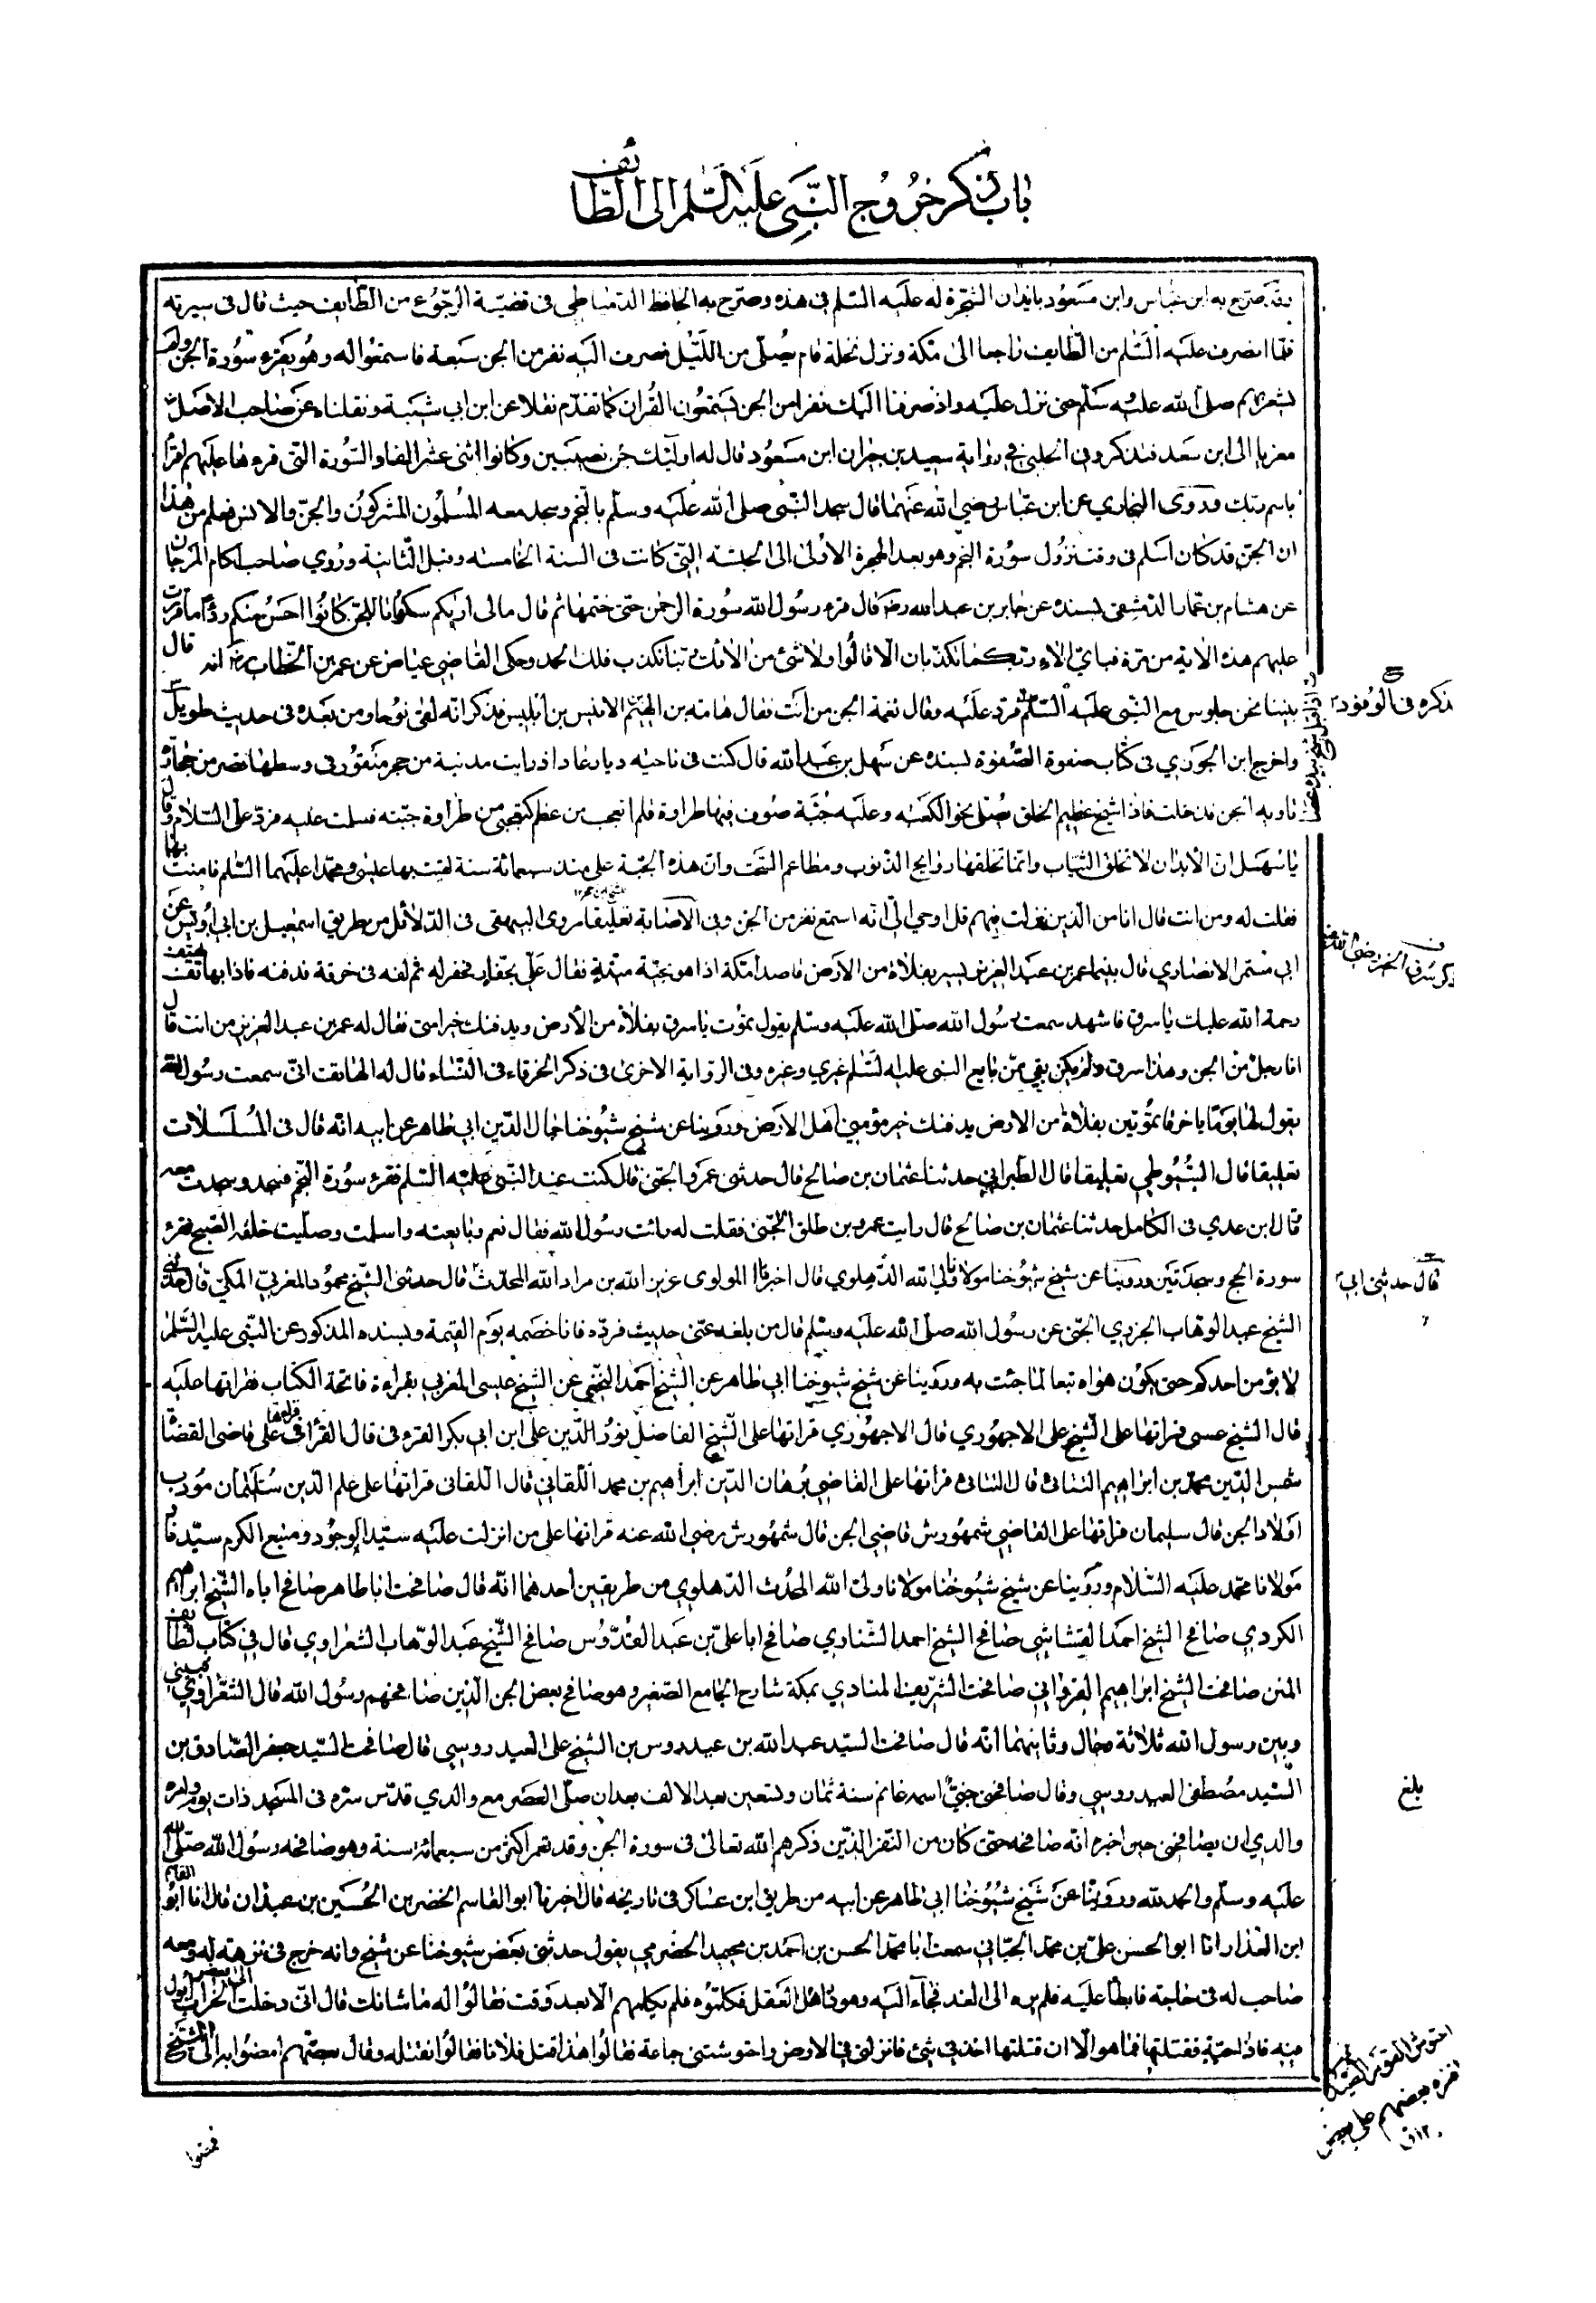 باب ذكر خروج النبي عليه السلم الى الطائف
وقد صرح به ابن عباس وابن مسعود بايذان الشجرة له عليه السلم في هذه وصرح به الحافظ الدمياطي في قضية الرجوع من الطايف حيث قال في سيرته
فلما انصرف عليه السلم من الطايف راجعا الى مكة ونزل نخلة قام يصلى من الليل فصرف اليه نفر من الجن سبعة فاستمعوا له وهو يقرء سورة الجن ولم
يشعر بهم صلى الله عليه وسلم حتى نزل عليه واذ صرفنا اليك نفرا من الجن يستمعون القران كما تقدم نقلا عن ابن ابي شيبة ونقلناه عن صاحب الاصل
معزيا الى ابن سعد فتذكر وفي الحلبي في رواية سعيد بن جبر ان ابن مسعود قال له اوليك جن نصيبين وكانوا اثني عشر الفا والسورة التي قرءها عليهم اقرأ
باسم ربك وروى البخاري عن ابن عباس رضي الله عنهما قال سجد النبي صلى الله عليه وسلم بالنجم وسجد معه المسلمون المشركون والجن والانس فعلم من هذا
ان الجن قد كان اسلم في وقت نزول سورة النجم وهو بعد الهجرة الاولى الى الحبشه التي كانت في السنة الخامسه وقبل الثانية وروي صاحب اكام المرجان
عن هشام بن عمار الدمشقي بسنده عن جابر بن عبد الله رضه قال قرء رسول الله سورة الرحمن حتى ختمها ثم قال مالى اريكم سكوتا للجن كانوا احسن منكم ردا ما قرت
عليهم هذه الاية من مرة فباي الاء ربكما تكذبان الا قالوا ولا شئ من الائك ربنا نكذب فلك الحمد وحكى القاضي عياض عن عمر بن الخطاب رضه انه قال
بينا نحن جلوس مع النبي عليه السلم فرد عليه وقال نغمة الجن من انت فقال هامة بن الهيثم الاقيس بن ابليس فذكر انه لقى نوحا ومن بعده في حديث طويل
ذكره في الوفود
واخرج ابن الجوزي في كتاب صفوة الصفوة بسنده عن سهل بن عبد الله قال كنت في ناحيه ديار عاد اذ رايت مدنية من حجر منقور في وسطها قصر من حجارة
تاويه الجن فدخلت فاذا شيخ عظيم الخلق يصلى نحو الكعبه وعليه جبة صوف فيها طراوة فلم اتعجب من عظم كتعجبي من طراوة جبته فسلمت عليه فرد على السلام وقال
يا سهل ان الابدان لا تخلق الثياب وانما تخلقها روايح الذنوب ومطاعم السحت وان هذه الجبة على منذ سبعمائة سنة لقيت بها عيسى ومحمدا عليهما السلم فامنت بهما
فقلت له ومن انت قال انا من الذين نزلت فيهم قل اوحي الي انه استمع نفر من الجن وفي الاصابة تعليقا روى البيهقى في الدلائل من طريق اسمعيل بن ابي اويس عن
ابي معتمر الانصاري قال بينما عمر بن عبد العزيز يسير بفلاة من الارض قاصدا مكة اذا هو بحية ميتة فقال علي بحفار فحفر له ثم لفه في خرقة فدفنه فاذا بهاتف يهتف
رحمة الله عليك يا سرق فاشهد سمعت رسول الله صلى الله عليه وسلم يقول تموت يا سرق بفلاة من الارض ويدفنك خير امتي فقال له عمر بن عبد العزيز من انت قال
انا رجل من الجن وهذا سرق ولم يكن بقي ممن بايع النبي عليه السلم غيري وغيره وفي الرواية الاخرى في ذكر الخرقاء في النساء قال له الهاتف اني سمعت رسول الله
يقول لها يوما يا خرقا تموتين بفلاة من الارض يدفنك خير مؤمني اهل الارض وروينا عن شيخ شيوخنا جمال الدين ابي طاهر عن ابيه انه قال في المسلسلات
تعليقا قال السيوطي تعليقا قال الطبراني حدثنا عثمان بن صالح قال حدثني عمرو الجني قال كنت عند النبي عليه السلم فقرء سورة النجم فسجد وسجدت معه
قال ابن عدي في الكامل حدثنا عثمان بن صالح قال رايت عمرو بن طلق الجني فقلت له رايت رسول الله فقال نعم وبايعته واسلمت وصليت خلفه الصبح فقرء
سورة الحج وسجد سجدتين وروينا عن شيخ شيوخنا مولانا ولي الله الدهلوي قال اخبرنا المولوى عزيز الله بن مراد الله المحدث قال حدثني الشيخ محمود المغربي المكي قال حدثني
قال حدثني ابي
الشيخ عبد الوهاب الجزري الجني عن رسول الله صلى الله عليه وسلم قال من بلغه عني حديث فرده فانا خصمه يوم القيمة وبسنده المذكور عن النبي عليه السلم
لا يؤمن احدكم حتى يكون هواه تبعا لما جئت به وروينا عن شيخ شيوخنا ابي طاهر عن الشيخ احمد النخلي عن الشيخ عيسى المغربي بقراءة فاتحة الكتاب فقراتها عليه
قال الشيخ عيسى قراتها على الشيخ على الاجهوري قال الاجهوري قراتها على الشيخ الفاضل نور الدين على ابن ابي بكر القرافي قال القرافي قراءتها على قاضى القضاة
شمس الدين محمد بن ابراهيم التتائي قال التتائي قراتها على القاضي برهان الدين ابراهيم بن محمد اللقاني قال اللقاني قراتها على علم الدين سليمان مؤدب
اولاد الجن قال سليمان قراتها على القاضي شمهورش قاضي الجن قال شمهورش رضي الله عنه قراتها على من انزلت عليه سيد الوجود ومنبع الكرم سيدنا
مولانا محمد عليه السلام وروينا عن شيخ شيوخنا مولانا ولي الله المحدث الدهلوي من طريقين احدهما انه قال صافحت ابا طاهر صافح اباه الشيخ ابراهيم
الكردي صافح الشيخ احمد القشاشي صافح الشيخ احمد الشناوي صافح ابا علي بن عبد القدوس صافح الشيخ عبد الوهاب الشعراوي قال في كتاب لطائف
المنن صافحت الشيخ ابراهيم القيرواني صافحت الشريف المنادي بمكة شارح الجامع الصغير وهو صافح بعض الجن الذين صافحهم رسول الله قال الشعراوي فبيني
وبين رسول الله ثلاثة رجال وثانيهما انه قال صافحت السيد عبد الله بن عيدروس بن الشيخ على العيدروسي قال صافحت السيد جعفر الصادق بن
السيد مصطفى العيدروسي وقال صافحني جني اسمه غانم سنة ثمان وتسعين بعد الالف بعد ان صلى العصر مع والدي قدس سره في المسجد ذات يوم وامره
بلغ
والدي ان يصافحني حين اخبره انه صافحه حتى كان من النفر الذين ذكرهم الله تعالى في سورة الجن وقد تعمر اكثر من سبعمائة سنة وهو صافحه رسول الله صلى الله
عليه وسلم والحمد لله وروينا عن شيخ شيوخنا ابي طاهر عن ابيه من طريق ابن عساكر في تاريخه قال اخبرنا ابو القاسم الخضر بن الحسين بن عبدان قال انا ابو القاسم
ابن انا ابو الحسن علي بن محمد الجبائي سمعت ابا محمد الحسن بن احمد بن محيميد الحضرمي يقول حدثني بعض شيوخنا عن شيخ وانه خرج في نزهة له ومعه
صاحب له في حاجة فابطا عليه فلم يره الى الغد فجاء اليه وهو ذاهل العقل فكلموه فلم يكلمهم الا بعد وقت فقالوا له ما شانك قال اني دخلت الى بعض الخراب ابول
فيه فاذا حية فقتلتها فما هو الا ان قتلتها اخذني شئ فانزلني في الارض واحتوشتني جماعة فقالوا هذا قتل فلانا فقالوا نقتله وقال بعضهم امضوا به الى الشيخ
احتوش القوم الصيد
انفره بعضهم على بعض
١٢ ق
فمضوا